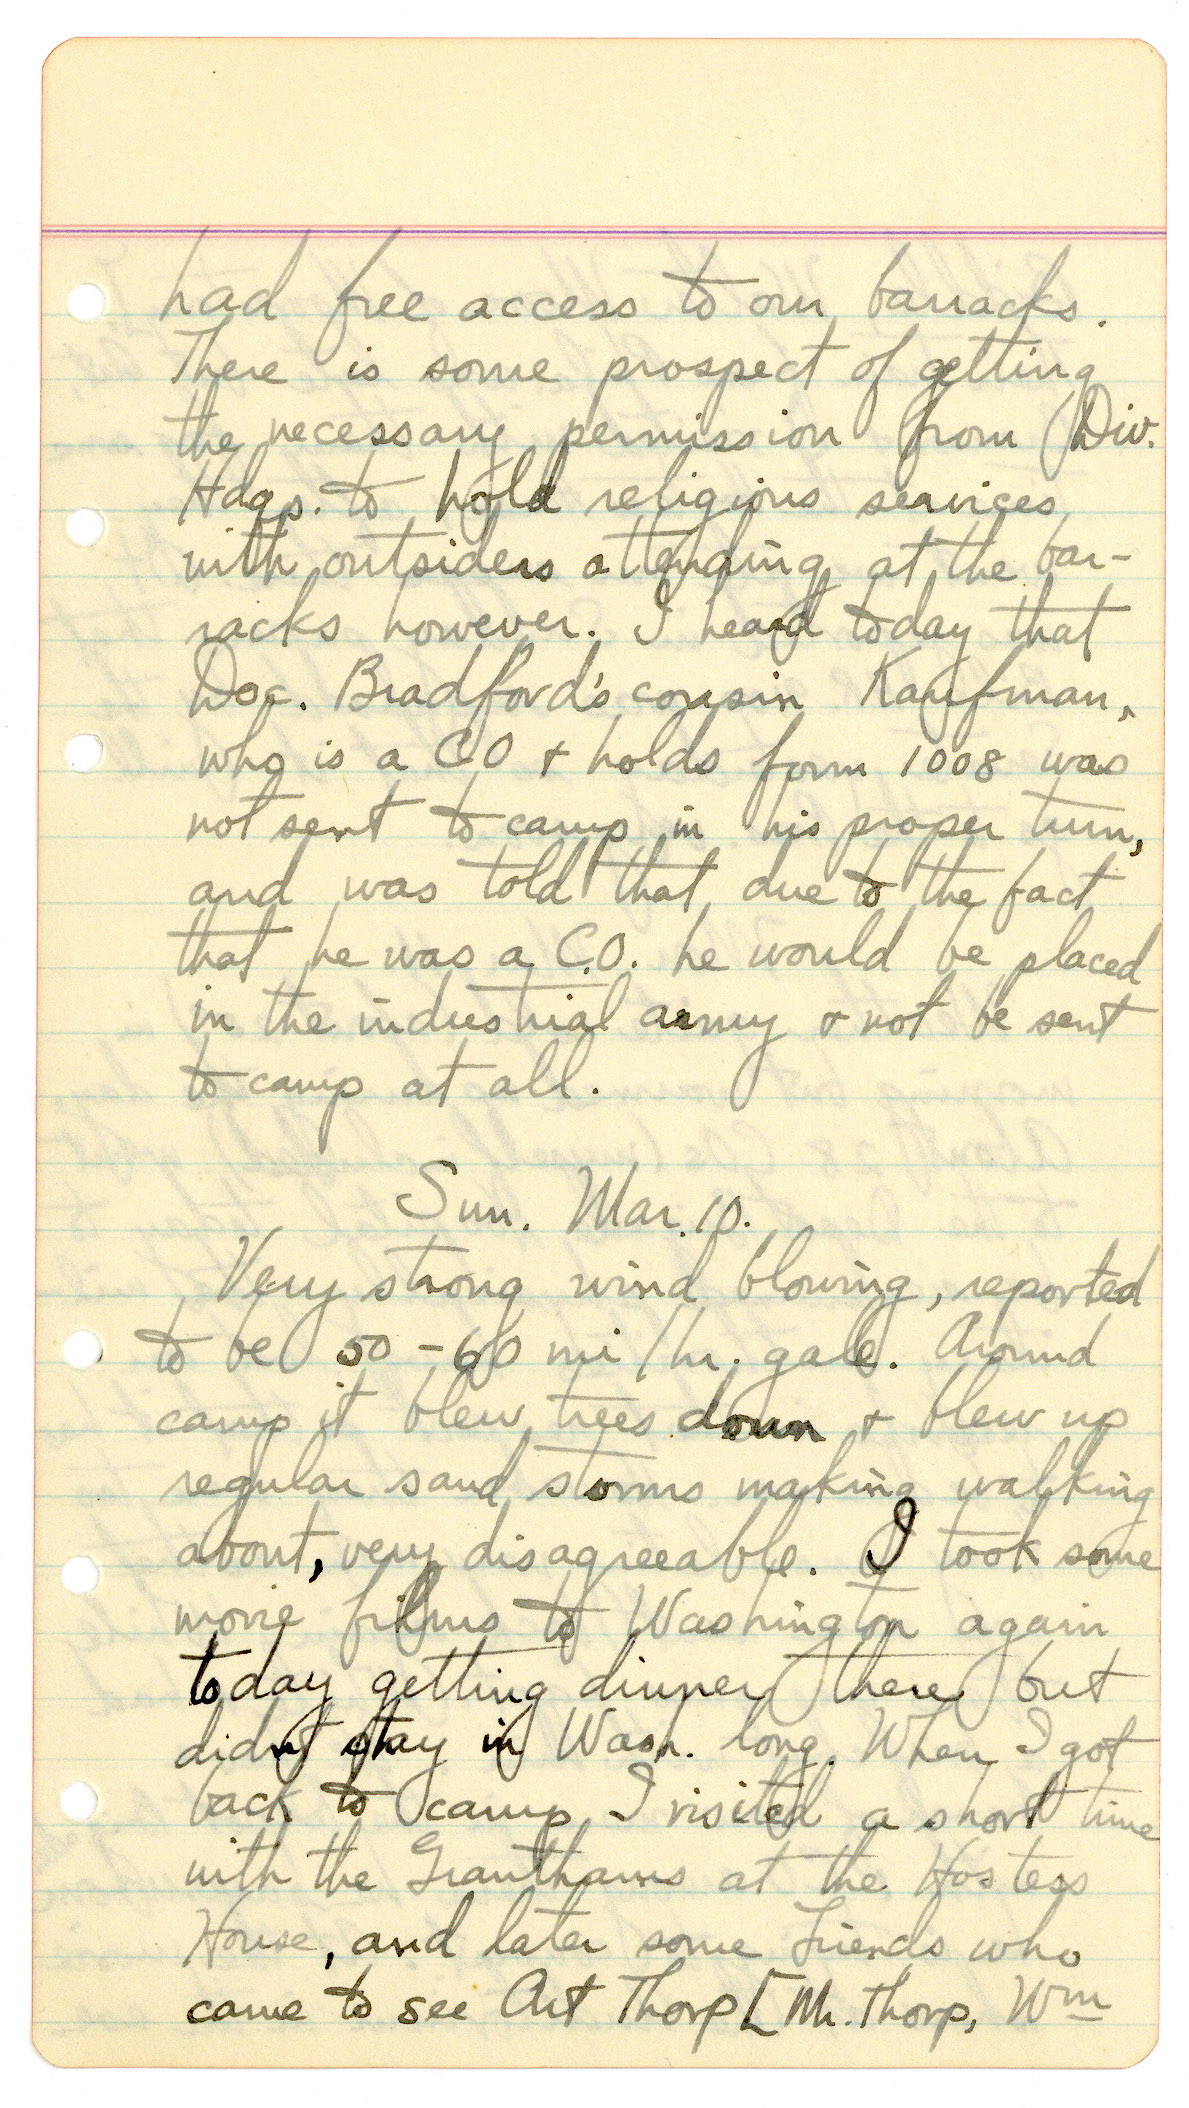 had free access to our barracks.
There is some prospect of getting
the necessary permission from Div.
Hdqs. to hold religious services
with outsiders attending at the bar-
racks however. I heard today that
Doc. Bradford's cousin Kaufman,
who is a CO + holds form 1008 was
not sent to camp in his proper turn,
and was told that due to the fact
that he was a C.O. he would be placed
in the industrial army + not be sent
to camp at all.
Sun. Mar. 10.
Very strong wind blowing, reported
to be 50-60 mi/hr. gale. Around
camp it blew trees down + blew up
regular sand storms making walking
about, very disagreeable. I took some
movie films to Washington again
today getting dinner there but
didn't stay in Wash. long. When I got
back to camp I visited a short time
with the Granthams at the Hostess
House, and later some Friends who
came to see Art Thorp [Mr. Thorp, Wm